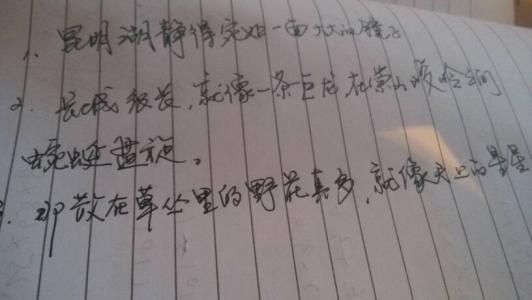 1、昆明湖静得宛如一面大的镜子
2、长城很长，就像一条巨龙在崇山峻岭之间
蜿蜒盘旋。
3、散在草丛里的野花真多，就像天上的星星